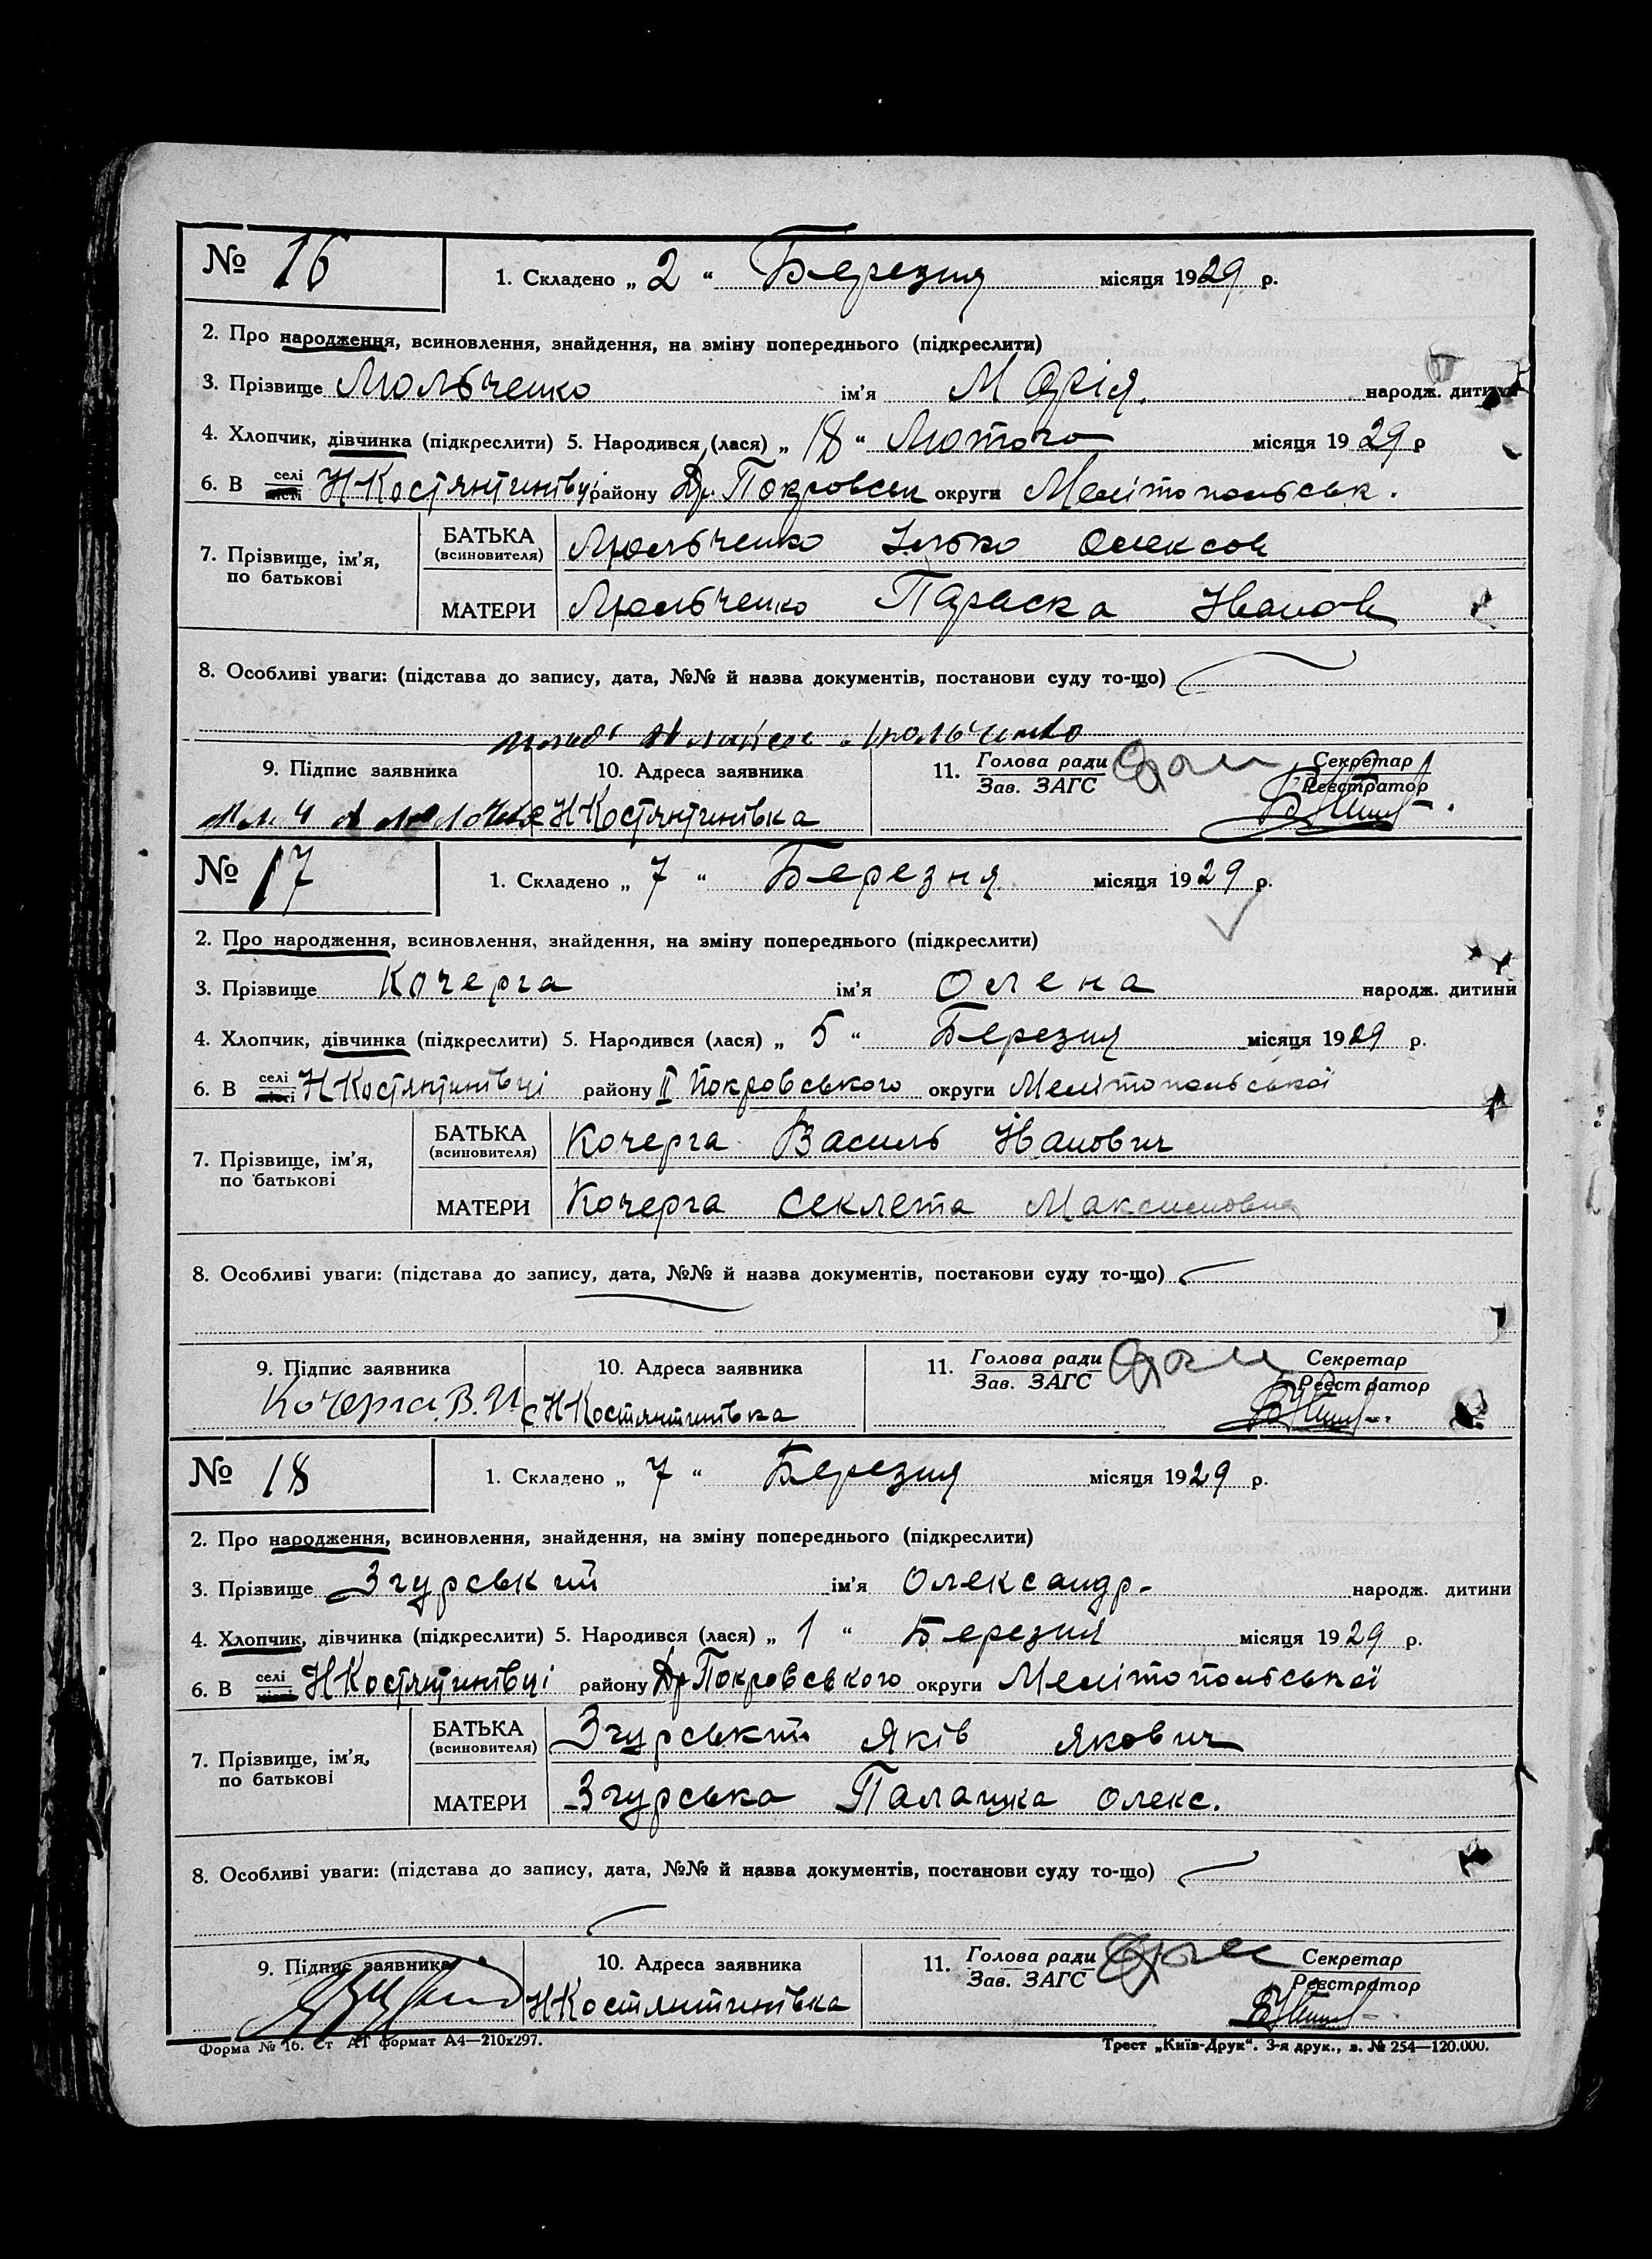 № 16
1. Складено „ 2 “ Березня місяця 1929 р.
2. Про народження, всиновлення, знайдення, на зміну попереднього (підкреслити)
3. Прізвище Люльченко ім'я Марія. народж. дитини
4. Хлопчик, дівчинка (підкреслити) 5. Народився (лася) „ 18 “ Лютого місяця 1929 р
6. В селі місті Н Костянтинівці району Др. Покровськ округи Мелітопольськ.
7. Прізвище, ім'я, по батькові
БАТЬКА (всиновителя) Люльченко Ілько Олексов
МАТЕРИ Люльченко Параска Іванов
8. Особливі уваги: (підстава до запису, дата, №№ й назва документів, постанови суду то-що)
9. Підпис заявника 10. Адреса заявника 11. Голова ради Зав. ЗАГС Секретар Реєстратор
Н Костянтинівка
№ 17
1. Складено „ 7 “ Березня місяця 1929 р.
2. Про народження, всиновлення, знайдення, на зміну попереднього (підкреслити)
3. Прізвище Кочерга ім'я Олена народж. дитини
4. Хлопчик, дівчинка (підкреслити) 5. Народився (лася) „ 5 “ Березня місяця 1929 р.
6. В селі місті Н Костянтинівці району II Покровського округи Мелітопольської
7. Прізвище, ім'я, по батькові
БАТЬКА (всиновителя) Кочерга Василь Іванович
МАТЕРИ Кочерга Секлета Максимовна
8. Особливі уваги: (підстава до запису, дата, №№ й назва документів, постанови суду то-що)
9. Підпис заявника 10. Адреса заявника 11. Голова ради Зав. ЗАГС Секретар Реєстратор
Кочерга. В. И с Н Костянтинівка
№ 18
1. Складено „ 7 “ Березня місяця 1929 р.
2. Про народження, всиновлення, знайдення, на зміну попереднього (підкреслити)
3. Прізвище Згурський ім'я Олександр- народж. дитини
4. Хлопчик, дівчинка (підкреслити) 5. Народився (лася) „ 1 “ Березня місяця 1929 р.
6. В селі місті Н Костянтинівці району Др Покровського округи Мелітопольської
7. Прізвище, ім'я, по батькові
БАТЬКА (всиновителя) Згурський Яків Якович
МАТЕРИ Згурська Палашка Олекс.
8. Особливі уваги: (підстава до запису, дата, №№ й назва документів, постанови суду то-що)
9. Підпис заявника 10. Адреса заявника 11. Голова ради Зав. ЗАГС Секретар Реєстратор
Н Костянтинівка
Форма № 16. Ст А1 формат А4—210х297. Трест „Київ-Друк“. 3-я друк., з. № 254—120.000.